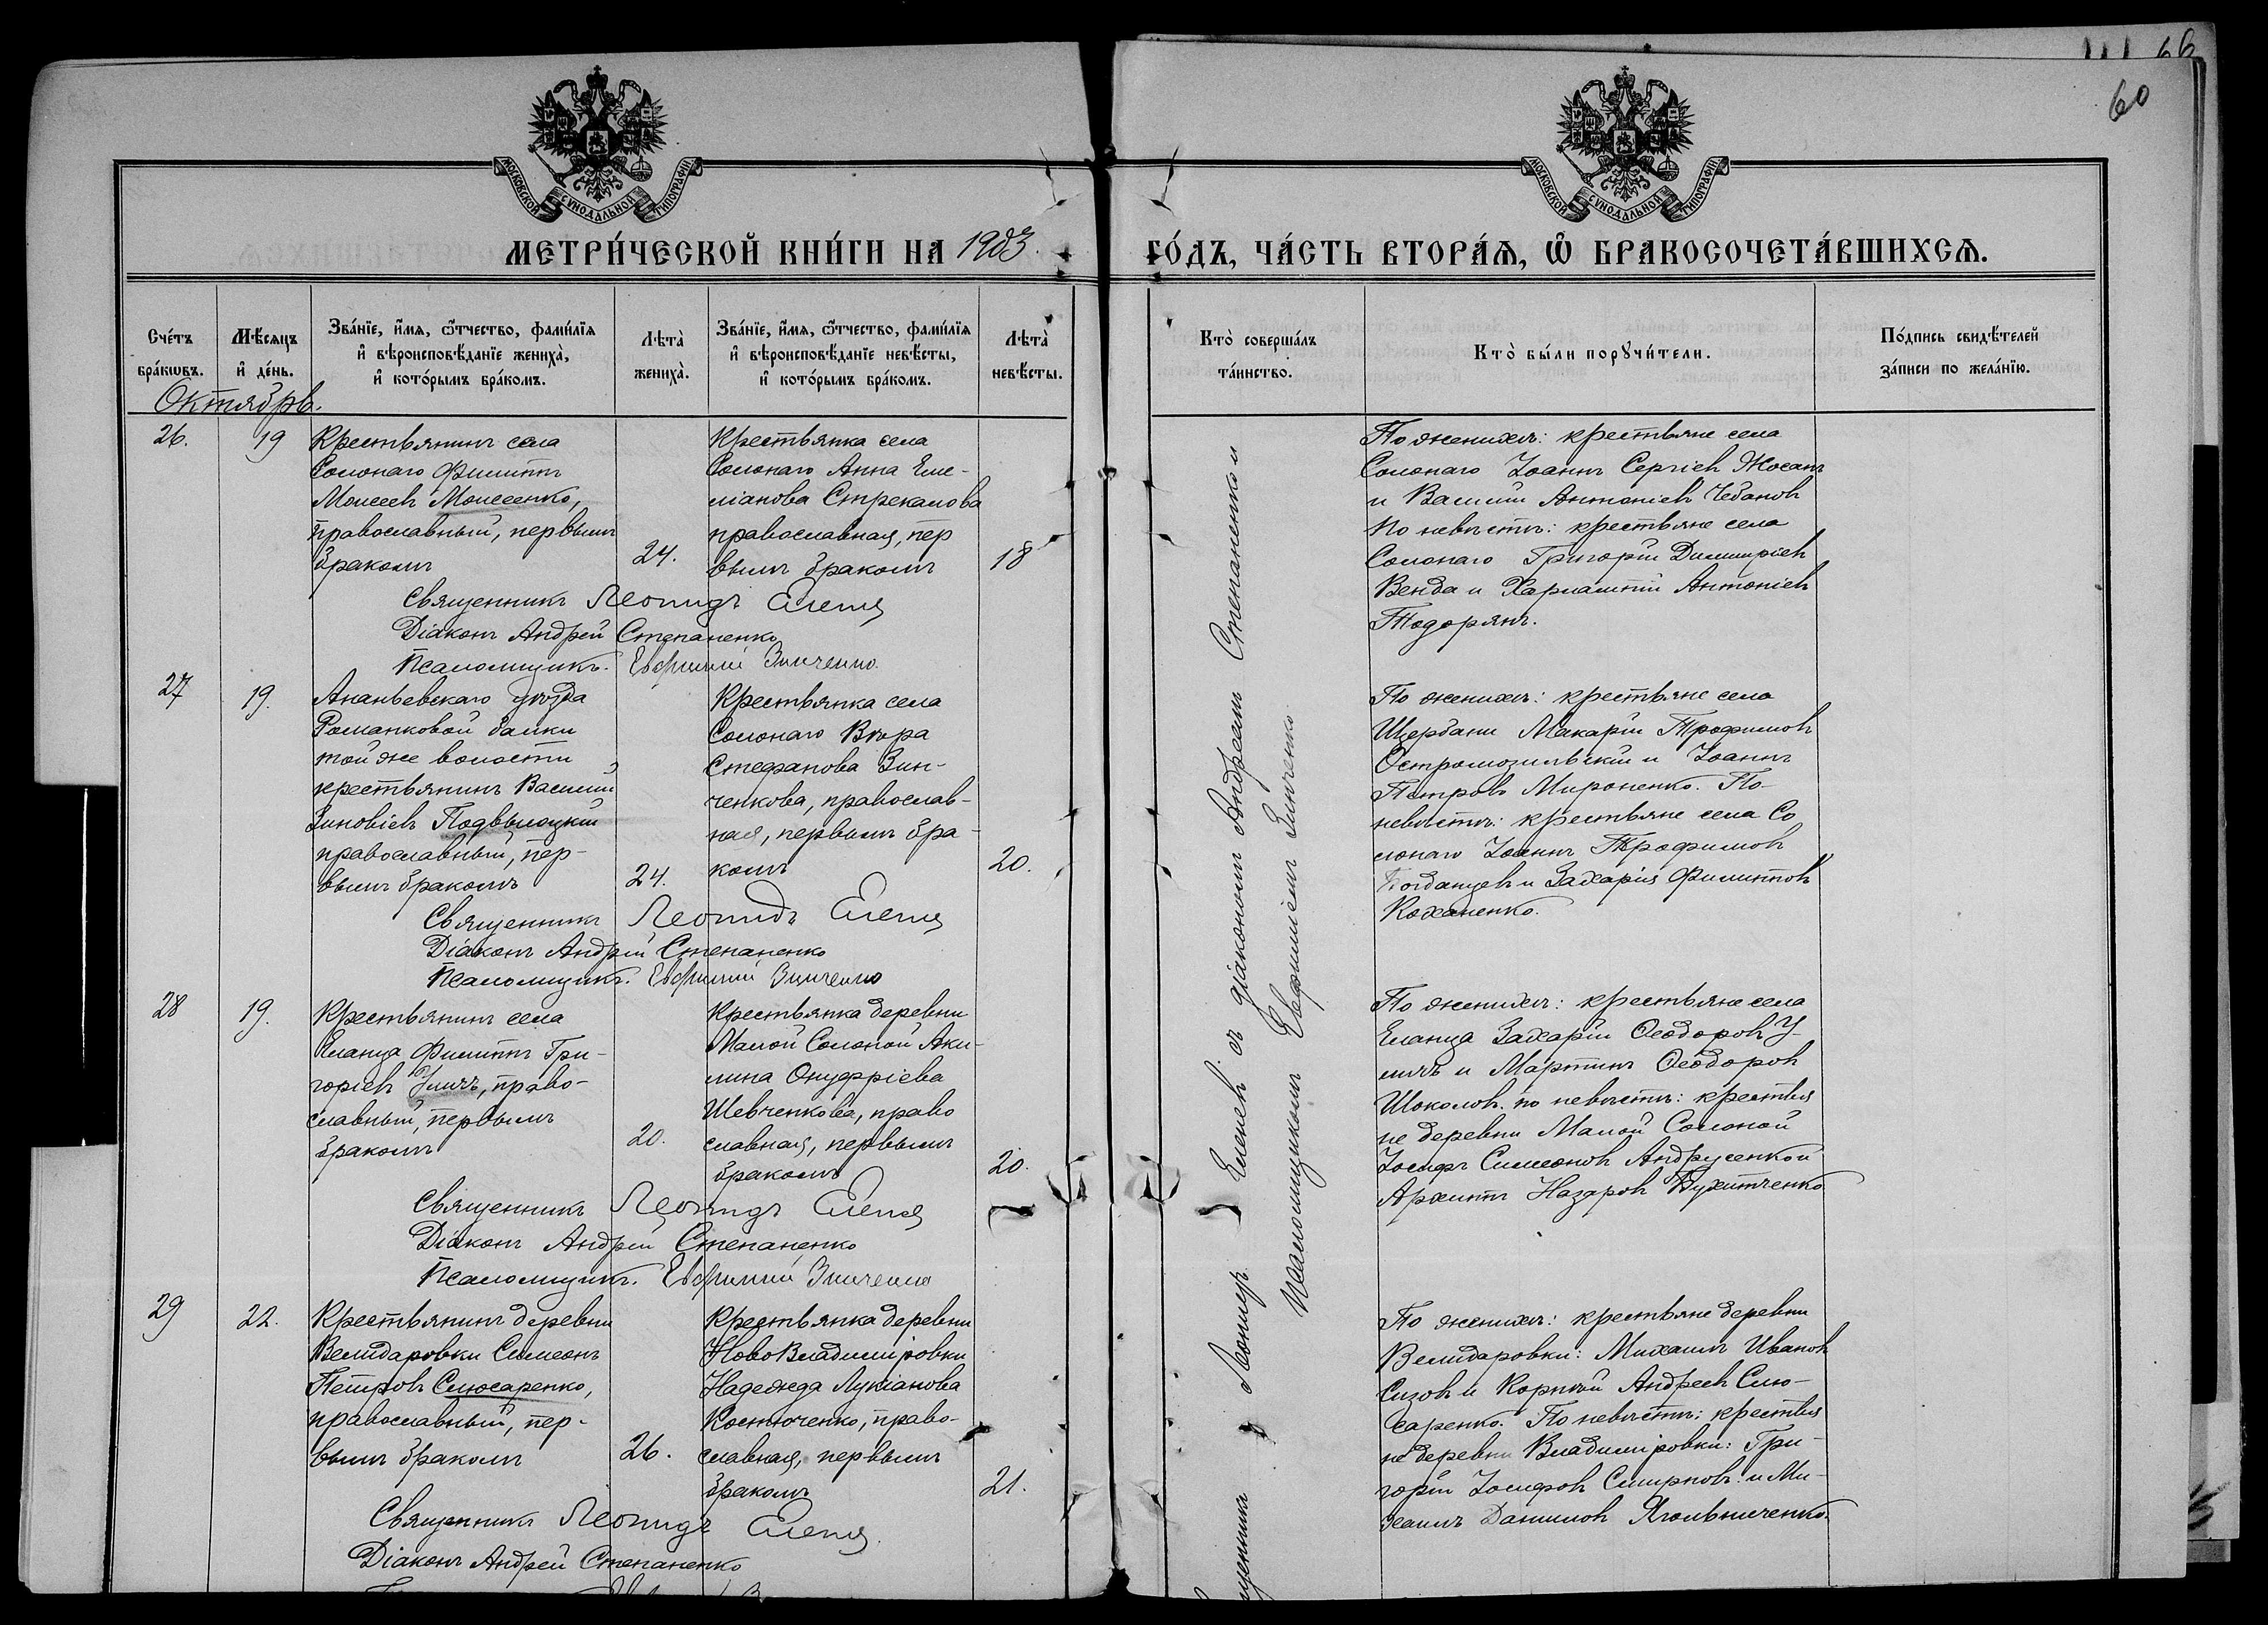 66
60
МОСКОВСКОЙ СѴНОДАЛЬНОЙ ТИПОГРАФІИ
МОСКОВСКОЙ СѴНОДАЛЬНОЙ ТИПОГРАФІИ
МЕТРИ́ЧЕСКОЙ КНИ́ГИ НА 1903.
ГО́ДЪ, ЧА́СТЬ ВТОРА́Я, Ѽ БРАКОСОЧЕТА́ВШИХСЯ.
Сче́тъ бра́кѡвъ.
Мѣ́сяцъ и҆ де́нь.
Зва́нїе, и҆́мя, ѻ҆́тчество, фами́лїя и҆ вѣроисповѣ́данїе жениха̀, и҆ кото́рымъ бра́комъ.
Лѣта̀ жениха̀.
Зва́нїе, и҆́мя, ѻ҆́тчество, фами́лїя и҆ вѣроисповѣ́данїе невѣ́сты, и҆ кото́рымъ бра́комъ.
Лѣта̀ невѣ́сты.
Кто̀ соверша́лъ та́инство.
Кто̀ бы́ли порꙋчи́тели.
По́дпись свидѣ́телей за́писи по жела́нїю.
Октябрь.
26.
19
Крестьянинъ села
Солонаго Филиппъ
Моисеевъ Моисеенко,
православный, первымъ
бракомъ
24.
Крестьянка села
Солонаго Анна Еме-
ліанова Стрекалова
православная, пер
вымъ бракомъ
18
По женихѣ: крестьяне села
Солонаго Іоаннъ Сергіевъ Жосанъ
и Василій Антоніевъ Чебановъ
По невѣстѣ: крестьяне села
Солонаго Григорій Димитріевъ
Венда и Харлампій Антоніевъ
Тодорянъ.
Священникъ Леонидъ Еленевъ
Діаконъ Андрей Степаненко
Псаломщикъ. Евфимій Зинченко.
27
19.
Ананьевскаго уѣзда
Романковой балки
той же волости
крестьянинъ Василій
Зиновіевъ Подвысоцкій
православный, пер-
вымъ бракомъ
24.
Крестьянка села
Солонаго Вѣра
Стефанова Зин-
ченкова, православ-
ная, первымъ бра-
комъ
20.
По женихѣ: крестьяне села
Щербани Макарій Трофимовъ
Остромогильскій и Іоаннъ
Петровъ Мироненко. По-
невѣстѣ: крестьяне села Со
лонаго Іоаннъ Трофимовъ
Богданцевъ и Захарія Филипповъ
Коханенко.
Священникъ Леонидъ Еленевъ
Діаконъ Андрей Степаненко
Псаломщикъ. Евфимій Зинченко
28
19.
Крестьянинъ села
Еланца Филиппъ Гри-
горіевъ Уличъ, право-
славный, первымъ
бракомъ
20.
Крестьянка деревни
Малой Солоной Аки-
лина Онуфріева
Шевченкова, право
славная, первымъ
бракомъ
20.
По женихѣ: крестьяне села
Еланца Захарій Ѳеодоровъ У-
личъ и Мартинъ Ѳеодоровъ
Шоколовъ. по невѣстѣ: крестья
не деревни Малой Солоной
Іосифъ Симеоновъ Андрусенко и
Архиппъ Назаровъ
Священникъ Леонидъ Еленевъ
Діаконъ Андрей Степаненко
Псаломщикъ. Евфимій Зинченко
29
22.
Крестьянинъ деревни
Велидаровки Симеонъ
Петровъ Слюсаренко,
православный, пер-
вымъ бракомъ
26.
Крестьянка деревни
НовоВладиміровки
Надежда Лукіанова
Костюченко, право-
славная, первымъ
бракомъ
21.
По женихѣ: крестьяне деревни
Велидаровки: Михаилъ Ивановъ
Сизовъ и Корнилій Андреевъ Слю-
саренко. По невѣстѣ: крестья
не деревни Владиміровки: Гри-
горій Іосифовъ Смирновъ и Ми-
хаилъ Даниловъ Ягольниченко.
Священникъ Леонидъ Еленевъ.
Діаконъ Андрей Степаненко
Леонидъ Еленевъ съ діакономъ Андреемъ Степаненко и
Псаломщикомъ Евфиміемъ Зинченко.